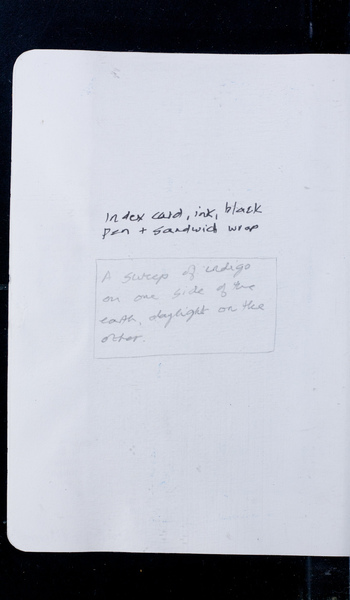 Index card, ink, black
pen + sandwich wrap
A sweep of indigo
on one side of the
earth, daylight on the
other.